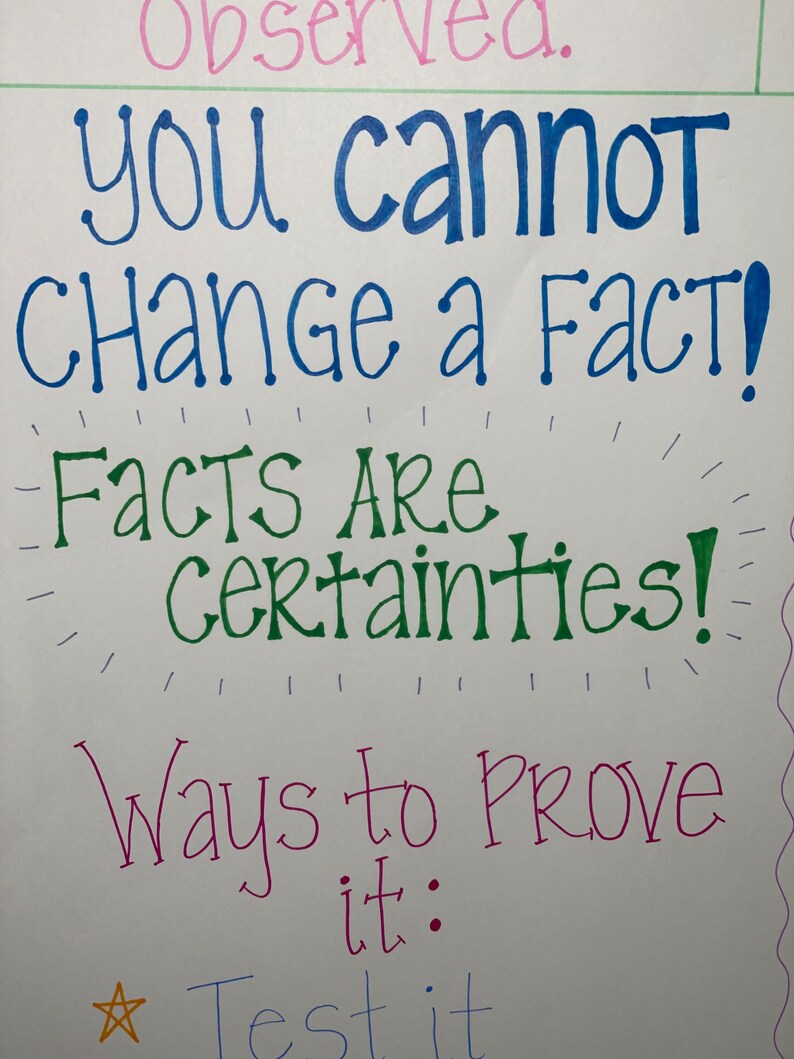 Observed.
You cannot
CHANGE a Fact!
Facts Are
certainties!
Ways to Prove
it:
Test it